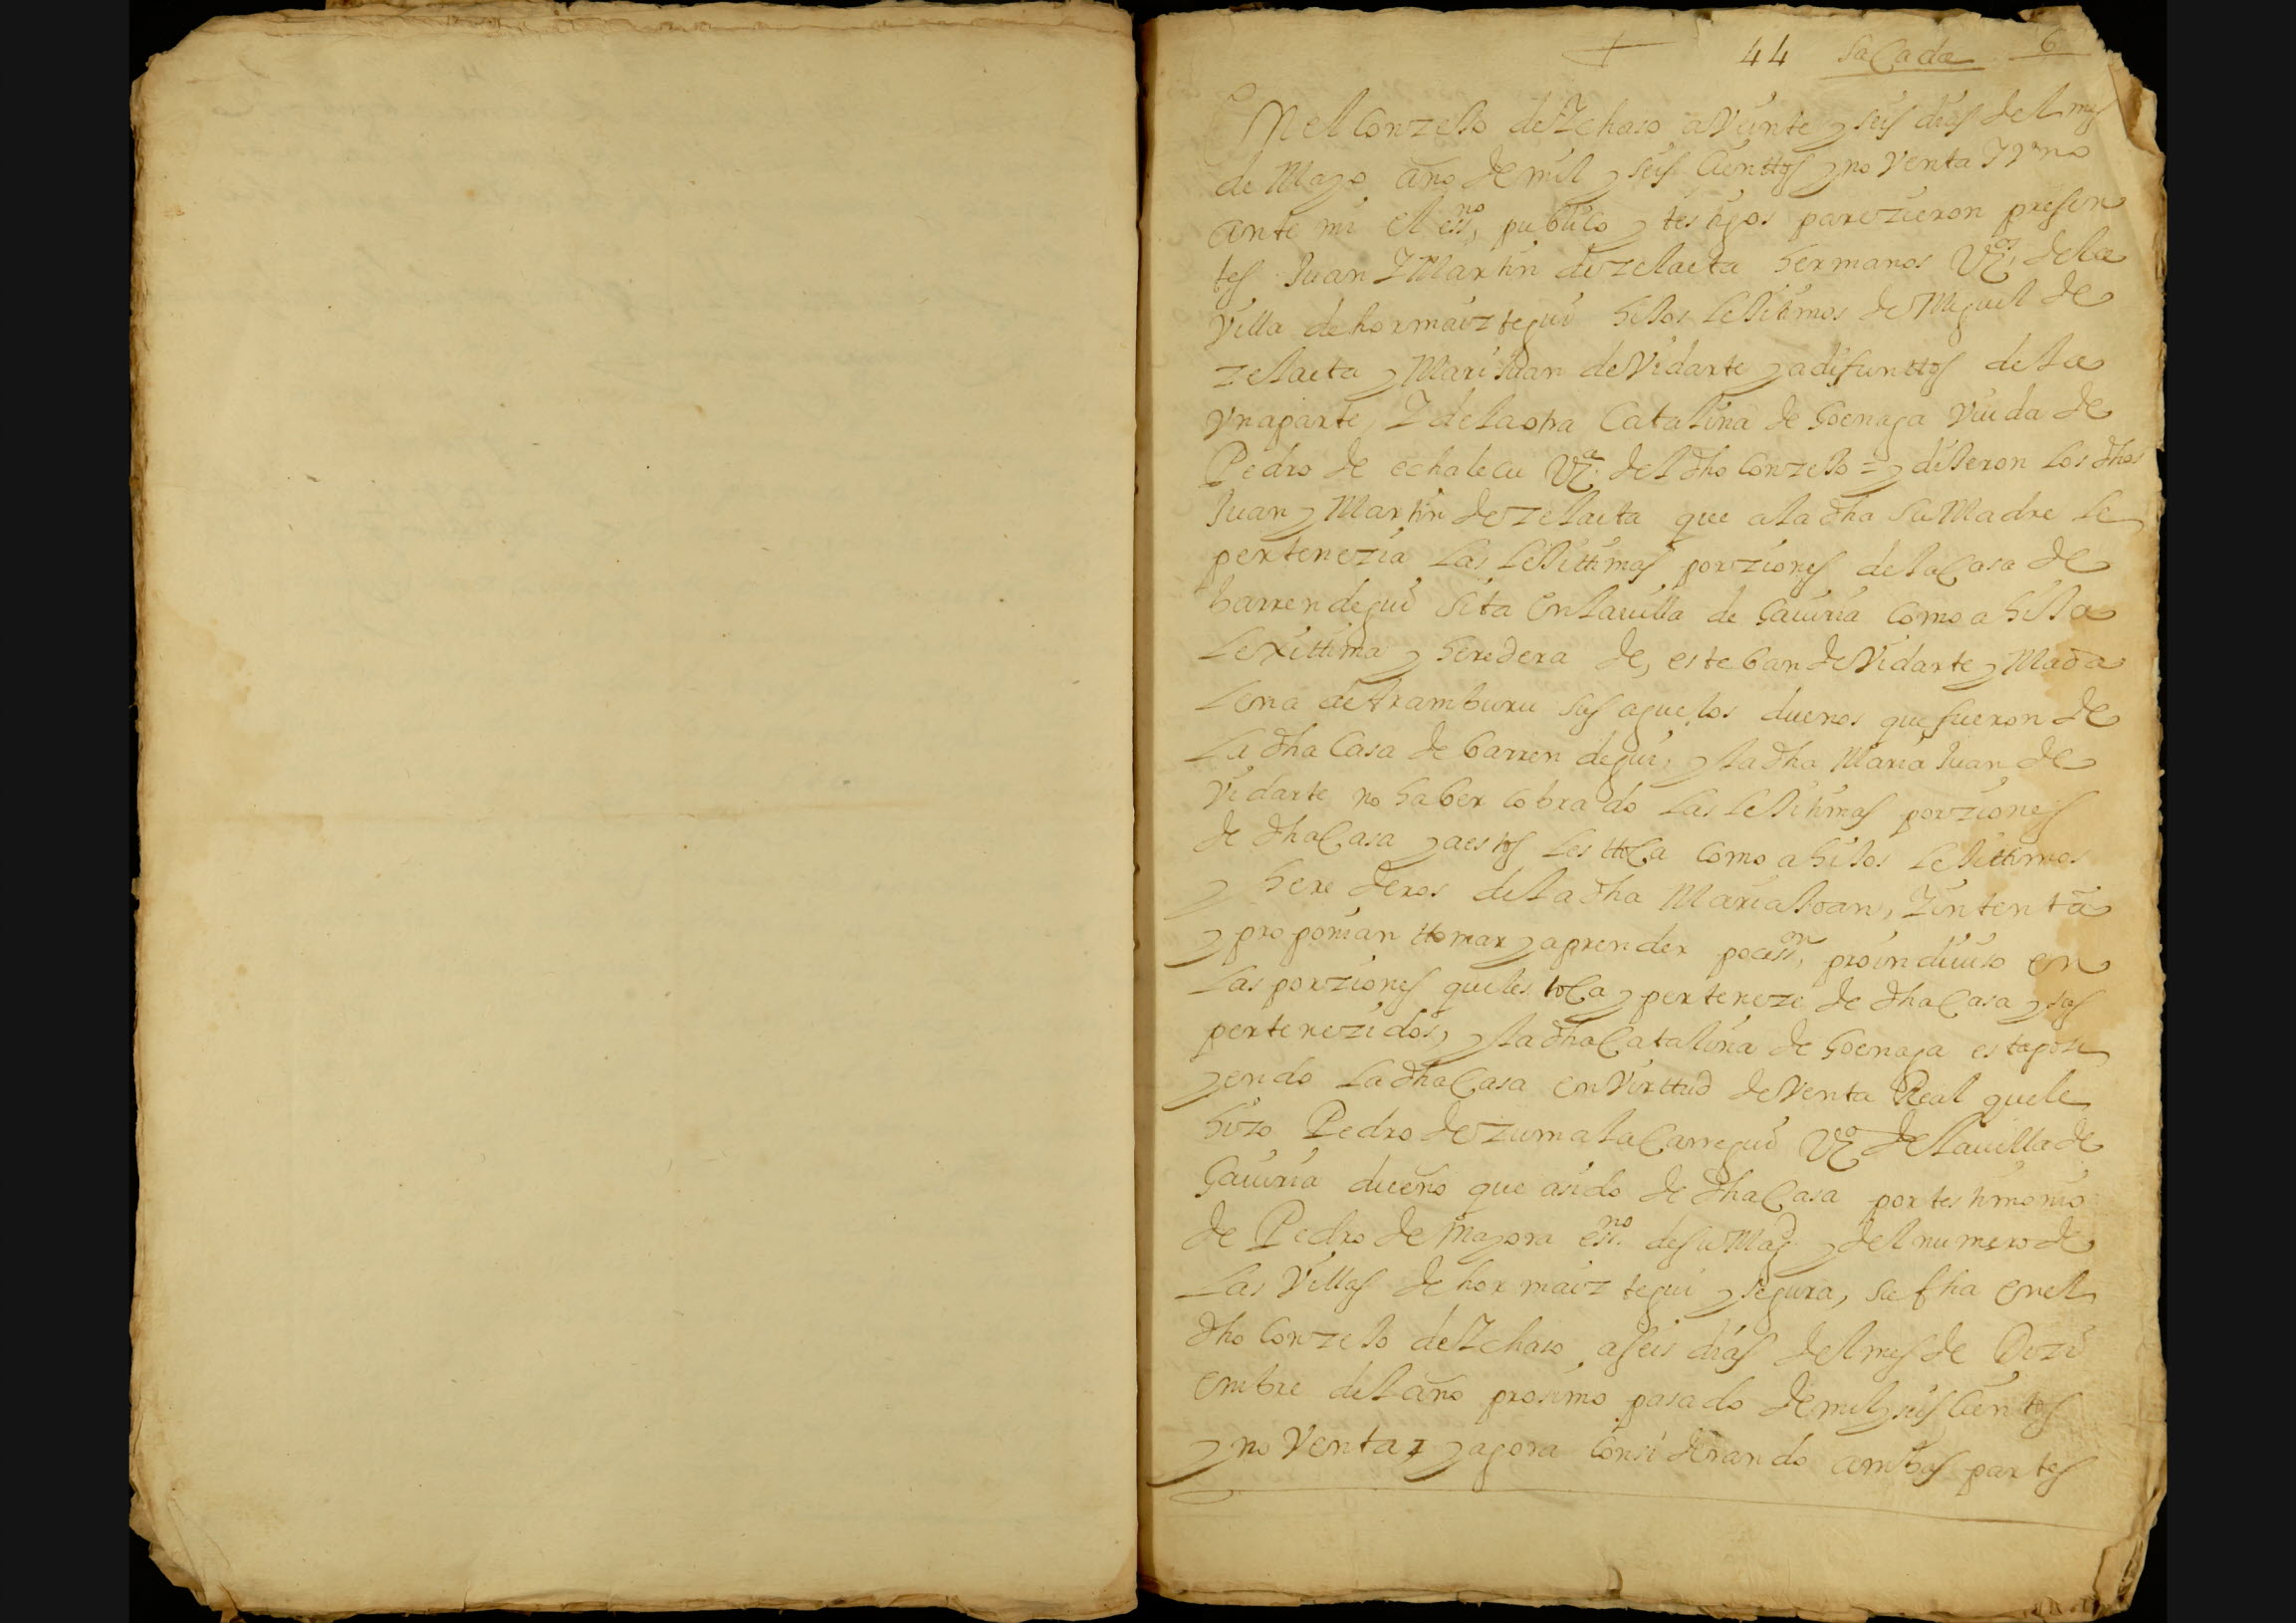 44 saCada 6
En el Conzello de Ychaso a Veinte y seis dias del mes
de Mayo año de mil y seis Cienttos y no venta y vno
ante mi el essno, publico y testigos parezieron presen
tes Juan y Martin de zelaeta hermanos Vos, de la
Villa de hormaiztegui hiJos leJitimos de Miguel de
zelaeta y Mari Juan de Vidarte ya difunttos de la
Vna parte, y de la otra Catalina de Goenaga viuda de
Pedro de echalecu Va. del dho Conzejo = y diJeron los dhos
Juan y Martin de zelaeta que a la dha su Madre le
pertenezia las leJittimas porziones de la Casa de
barrendegui sita en la uilla de Gauiria como a hiJa
leXittima y heredera de, esteban de Vidarte y Mada
lena de Aramburu sus aguelos duenos que fueron de
la dha Casa de barren degui, y la dha Maria Juan de
Vidarte no haber cobrado las leJitimas porziones
de dha Casa y a estos les ttoCa como a hiJos leJittimos
y here deros de la dha Maria Joan, y intentã
y proponian ttomar y aprender pocesson, proindiuiso en
las porziones que les toCa y perteneze de dha Casa y sus
pertenezidos, y la dha Catalina de Goenaga esta posei
yendo la dha Casa en Virttud de Venta Real que le
hizo Pedro de zumalaCarregui Vo de la uilla de
Gauiria dueño que a sido de dha Casa por testimonio
de Pedro de Mayora esno. de su Magd. y del numero de
las Villas de hormaiztegui y segura, su fha en el
dho Conzejo de Ychaso, a seis dias del mes de Dizi
embre del año prosimo pasado de mil y seis Cientos
y no Venta, y agora Consi derando ambas partes